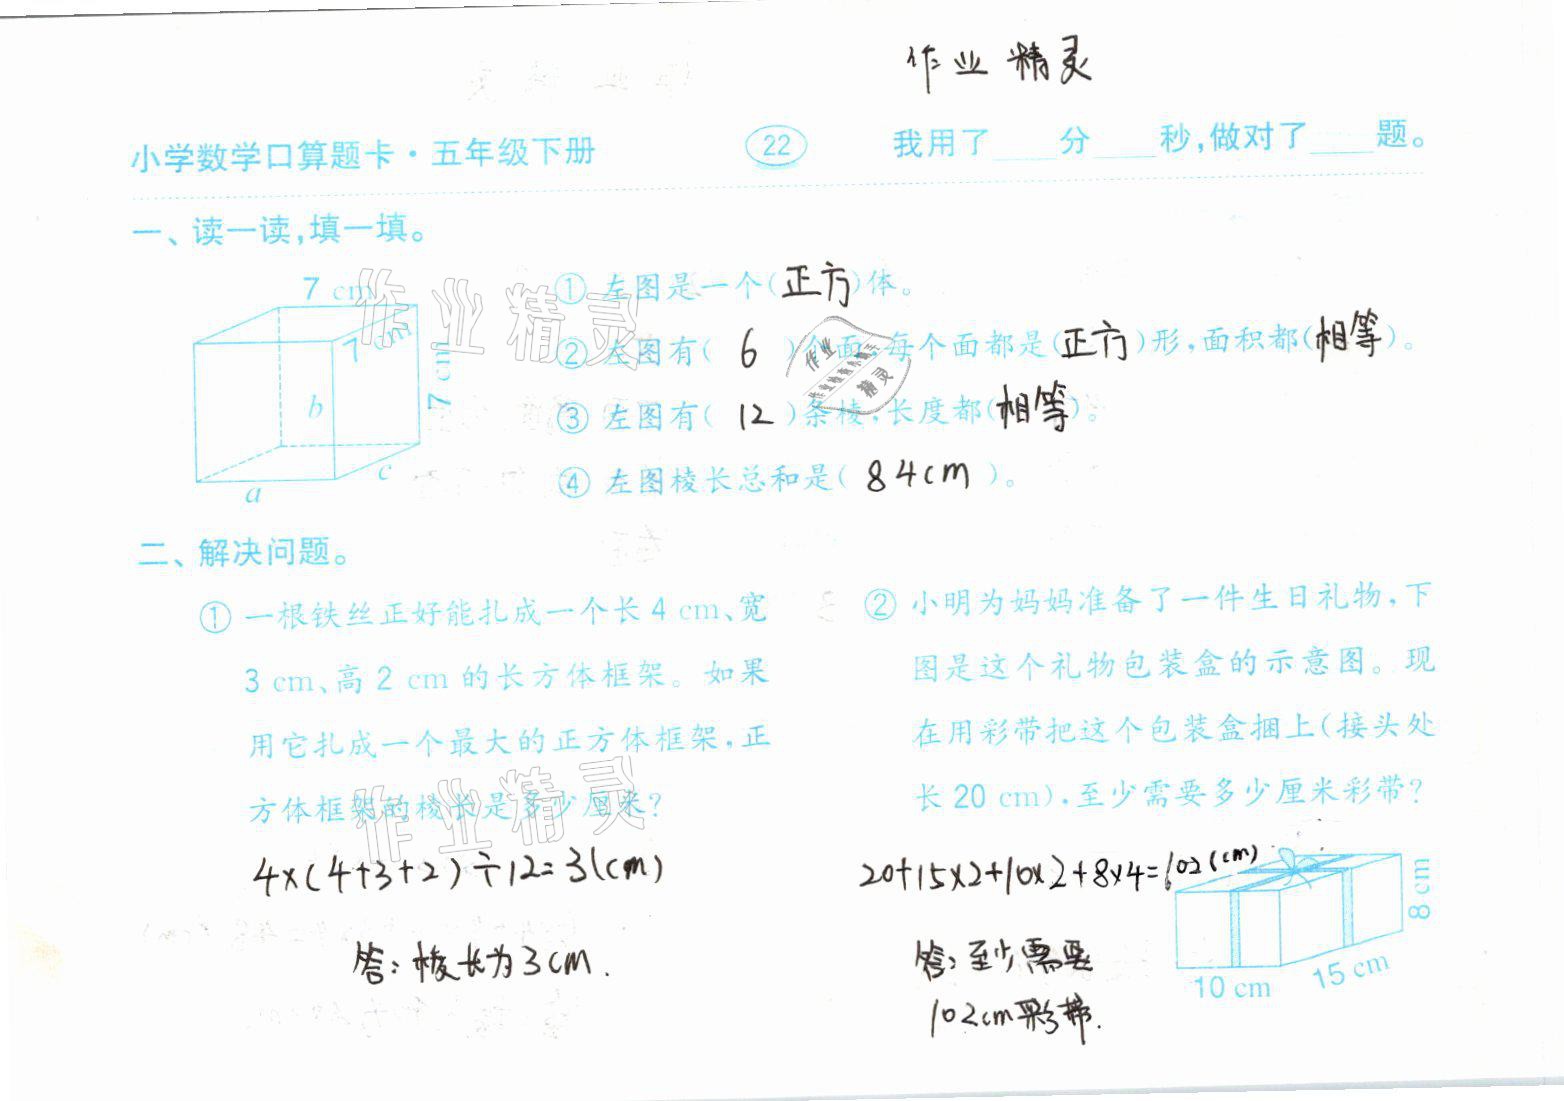 作业精灵
小学数学口算题卡·五年级下册 22 我用了____分____秒,做对了____题。
一、读一读,填一填。
7 cm
7 cm
7 cm
b
a
c
① 左图是一个(正方)体。
② 左图有( 6 )个面,每个面都是(正方)形,面积都(相等)。
③ 左图有( 12 )条棱,长度都(相等)。
④ 左图棱长总和是( 84cm )。
作业精灵
作业
精灵
二、解决问题。
① 一根铁丝正好能扎成一个长 4 cm、宽
3 cm、高 2 cm 的长方体框架。如果
用它扎成一个最大的正方体框架,正
方体框架的棱长是多少厘米?
作业精灵
4×(4+3+2)÷12=3(cm)
答:棱长为3cm.
② 小明为妈妈准备了一件生日礼物,下
图是这个礼物包装盒的示意图。现
在用彩带把这个包装盒捆上(接头处
长 20 cm),至少需要多少厘米彩带?
20+15×2+10×2+8×4=102(cm)
8 cm
10 cm
15 cm
答:至少需要
102cm彩带.